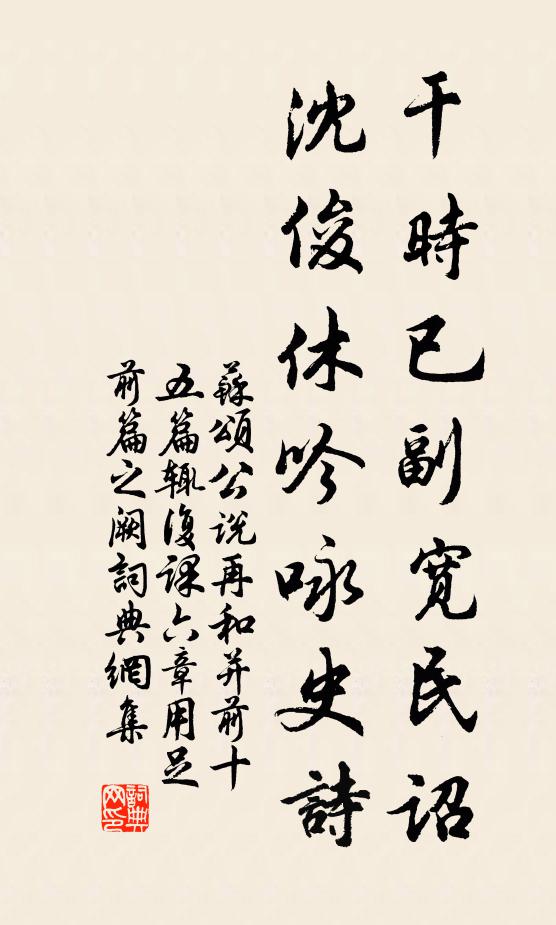 干時已副寛民詔
沈俊休吟咏史詩
蘇頌公說再和并前十
五篇輙復課六章用足
前篇之阙詞典網集
詞典
网印